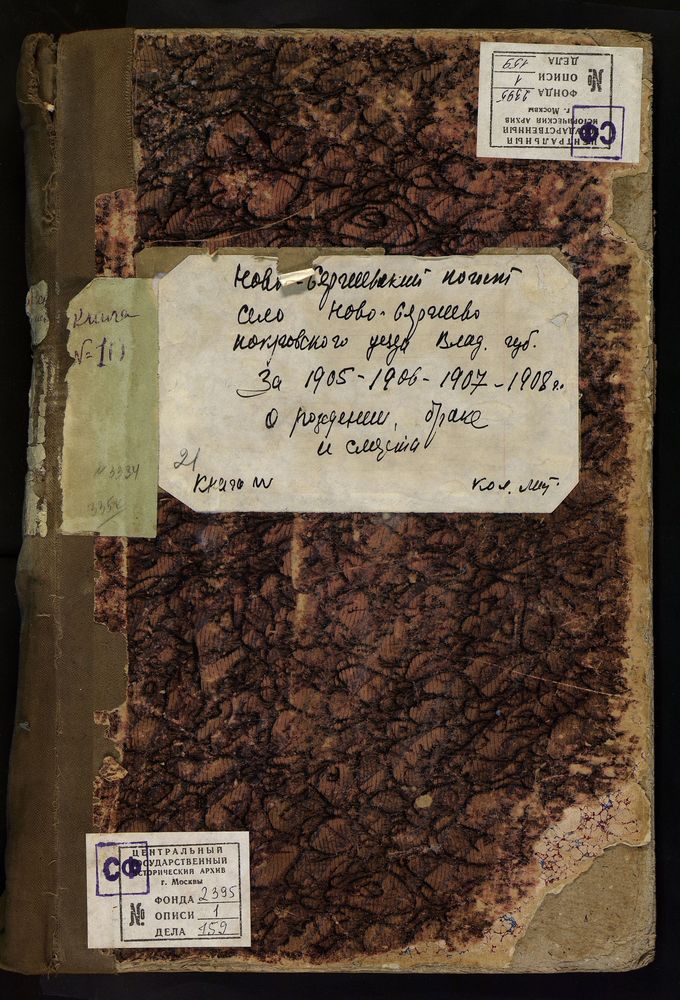 ЦЕНТРАЛЬНЫЙ
ГОСУДАРСТВЕННЫЙ
ИСТОРИЧЕСКИЙ АРХИВ
г. Москвы
СФ
№
ФОНДА 2395
ОПИСИ 1
ДЕЛА 159
Ново-Сергиевский погост
село Ново-Сергиево
покровского уезда Влад. губ.
За 1905-1906-1907-1908 г.
О рождении, браке
и смерти
21
Книга №
Книга
№
N 3334
3354
ЦЕНТРАЛЬНЫЙ
ГОСУДАРСТВЕННЫЙ
ИСТОРИЧЕСКИЙ АРХИВ
г. Москвы
СФ
№
ФОНДА 2395
ОПИСИ 1
ДЕЛА 159